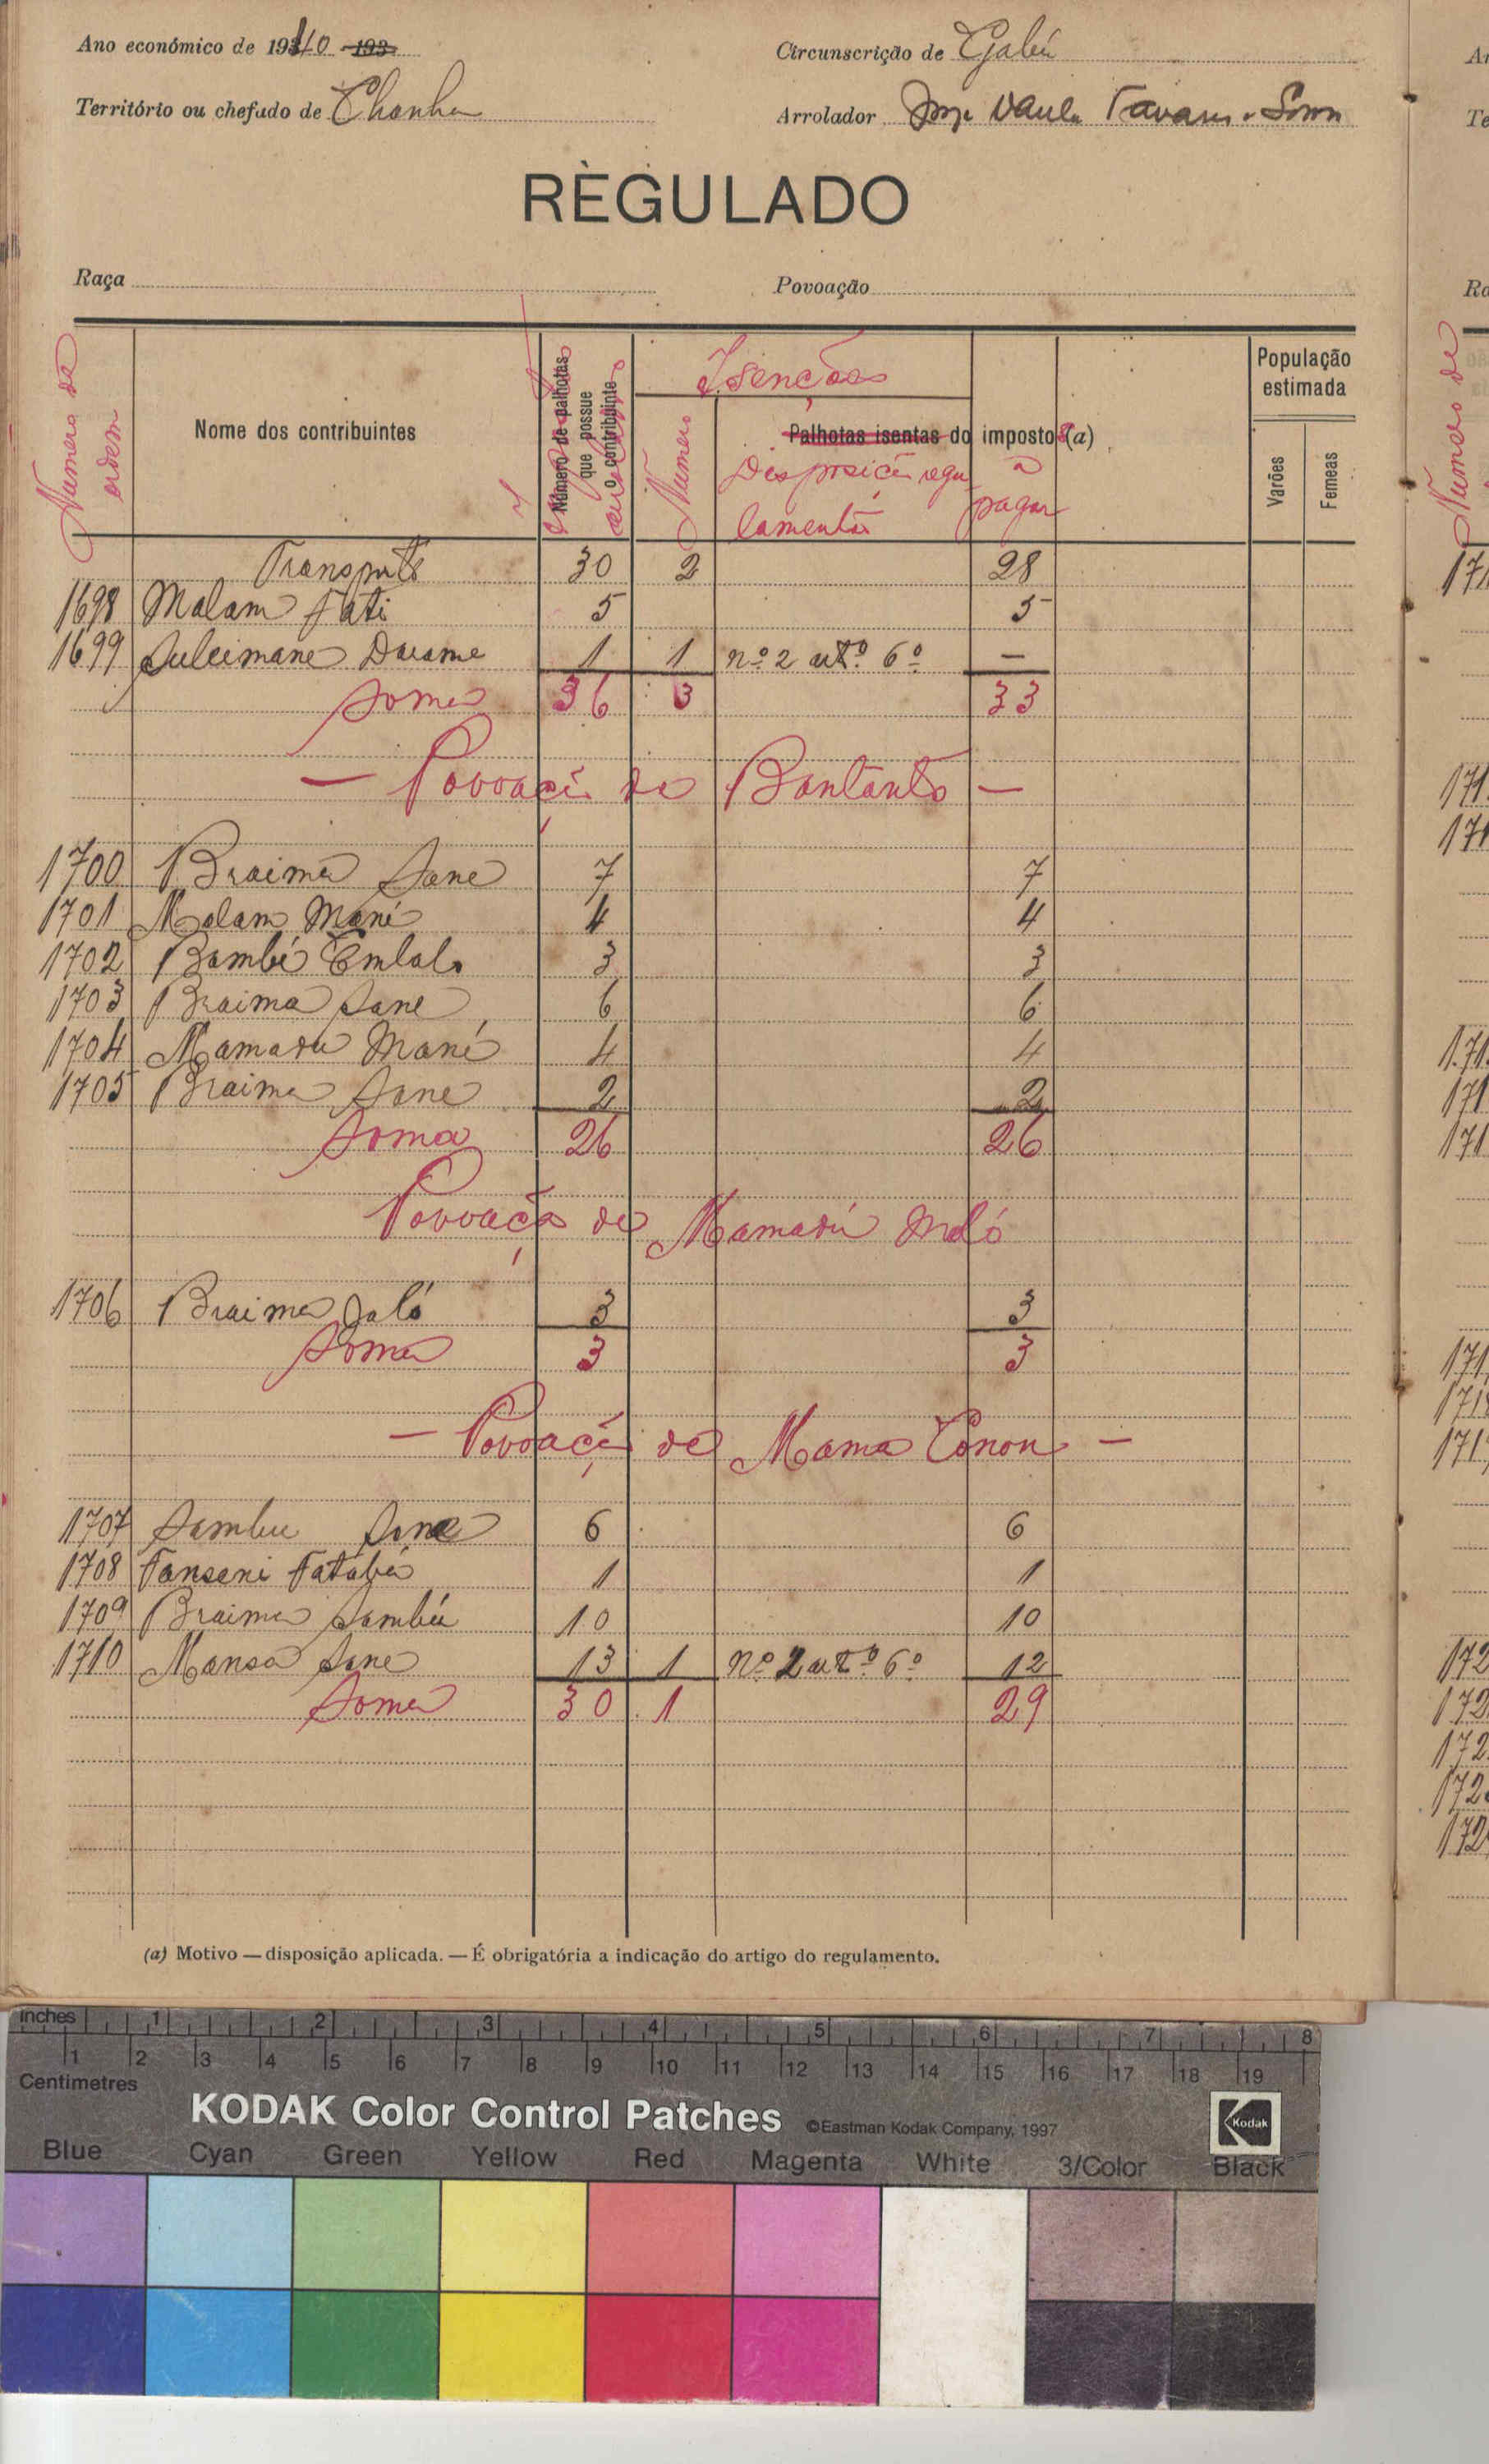 Ano económico de 1940 193
Circunscrição de Gabú
Território ou chefado de Chanha
Arrolador Tavares
REGULADO
Raça
Povoação
Numero de ordem
Nome dos contribuintes
Número de palhotas que possue o contribuinte
Isenções
Numero
Palhotas isentas do impostos (a)
Disposição regulamentar
a pagar
População estimada
Varões
Femeas
Transporte 30 2 28
1698 Malam Fati 5 5
1699 Suleimane Darame 1 1 nº 2 artº 6º —
Soma 36 3 33
— Povoação de Bantanto —
1700 Braima Sane 7 7
1701 Malam Mané 4 4
1702 Bambé Embalo 3 3
1703 Braima Sane 6 6
1704 Mamadu Mané 4 4
1705 Braima Sane 2 2
Soma 26 26
Povoação de Mamadú
1706 Braima Jaló 3 3
Soma 3 3
— Povoação de Mama Conon —
1707 Sambu Sane 6 6
1708 Fanseni Fatabá 1 1
1709 Braima Sambú 10 10
1710 Mansa Sane 13 1 nº 2 artº 6º 12
Soma 30 1 29
(a) Motivo — disposição aplicada. — É obrigatória a indicação do artigo do regulamento.
inches 1 2 3 4 5 6 7 8
1 2 3 4 5 6 7 8 9 10 11 12 13 14 15 16 17 18 19
Centimetres
KODAK Color Control Patches ©Eastman Kodak Company, 1997 Kodak
Blue Cyan Green Yellow Red Magenta White 3/Color Black